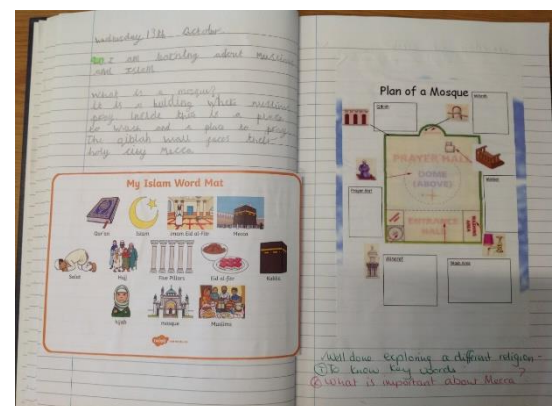 Wednesday 13th October
I am learning about muslims
and Islam
What is a mosque?
it is a bulding where muslims
pray inside this is a place
to wash and a place to pray
The qiblah wall faces their
holy city Mecca
My Islam Word Mat
Qur'an
Islam
Mecca
Salat
Hajj
Five Pillars
Eid al-Fitr
Kabba
Hijab
Mosque
Muslims
Plan of a Mosque
PRAYER HALL
DOME
(ABOVE)
ENTRANCE
HALL
Prayer Mat
Minaret
Well done exploring a different religion
To know key words
What is important about Mecca?